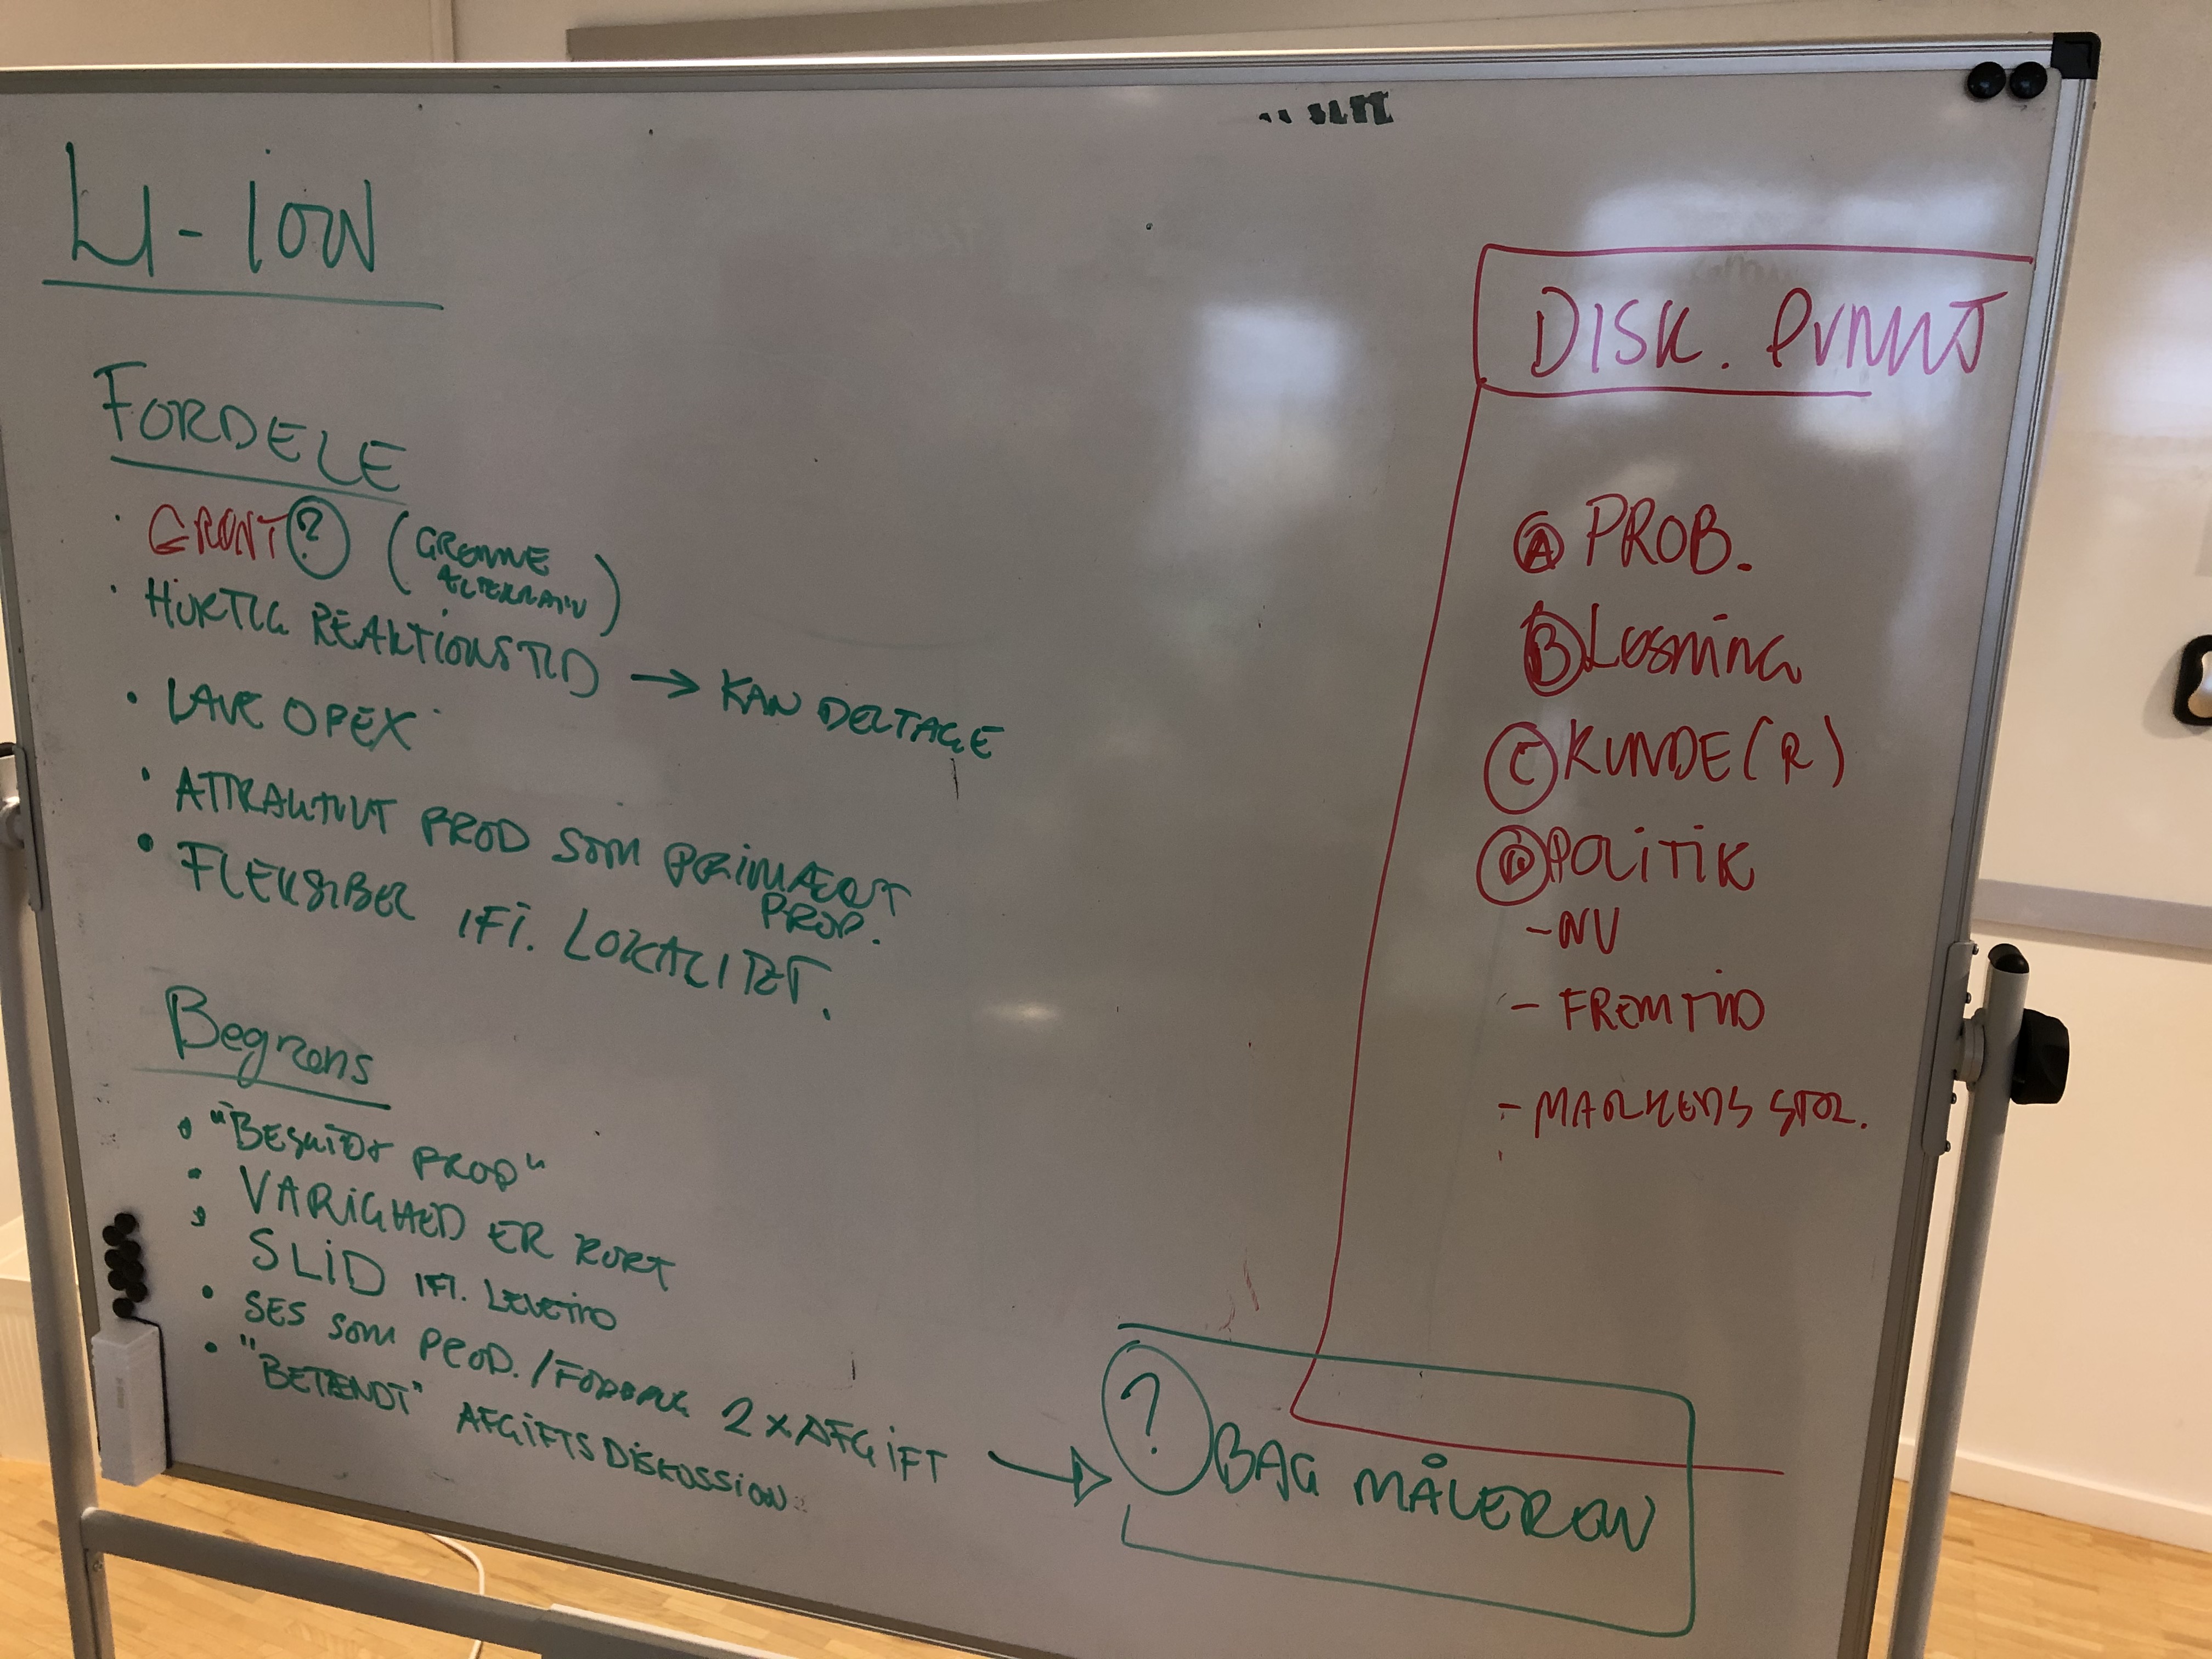 LI-ION
FORDELE
• GRØNT ? (GRØNNE
ALTERNATIV)
• HURTIG REAKTIONSTID → KAN DELTAGE
• LAVE OPEX
• ATTRAKTIVT PROD SOM PRIMÆRT
PROD.
• FLEKSIBEL IFT. LOKALITET.
Begræns
• "BESKIDT PROD"
• VARIGHED ER KORT
• SLID IFT. LEVETID
• SES SOM PROD./FORBRUG 2xAFGIFT
• "BETÆNDT" AFGIFTSDISKUSSION
→ ? BAG MÅLEREN
DISK. PUNKT
A PROB.
B LØSNING
C KUNDE(R)
D POLITIK
- NU
- FREMTID
- MARKEDS STØR.